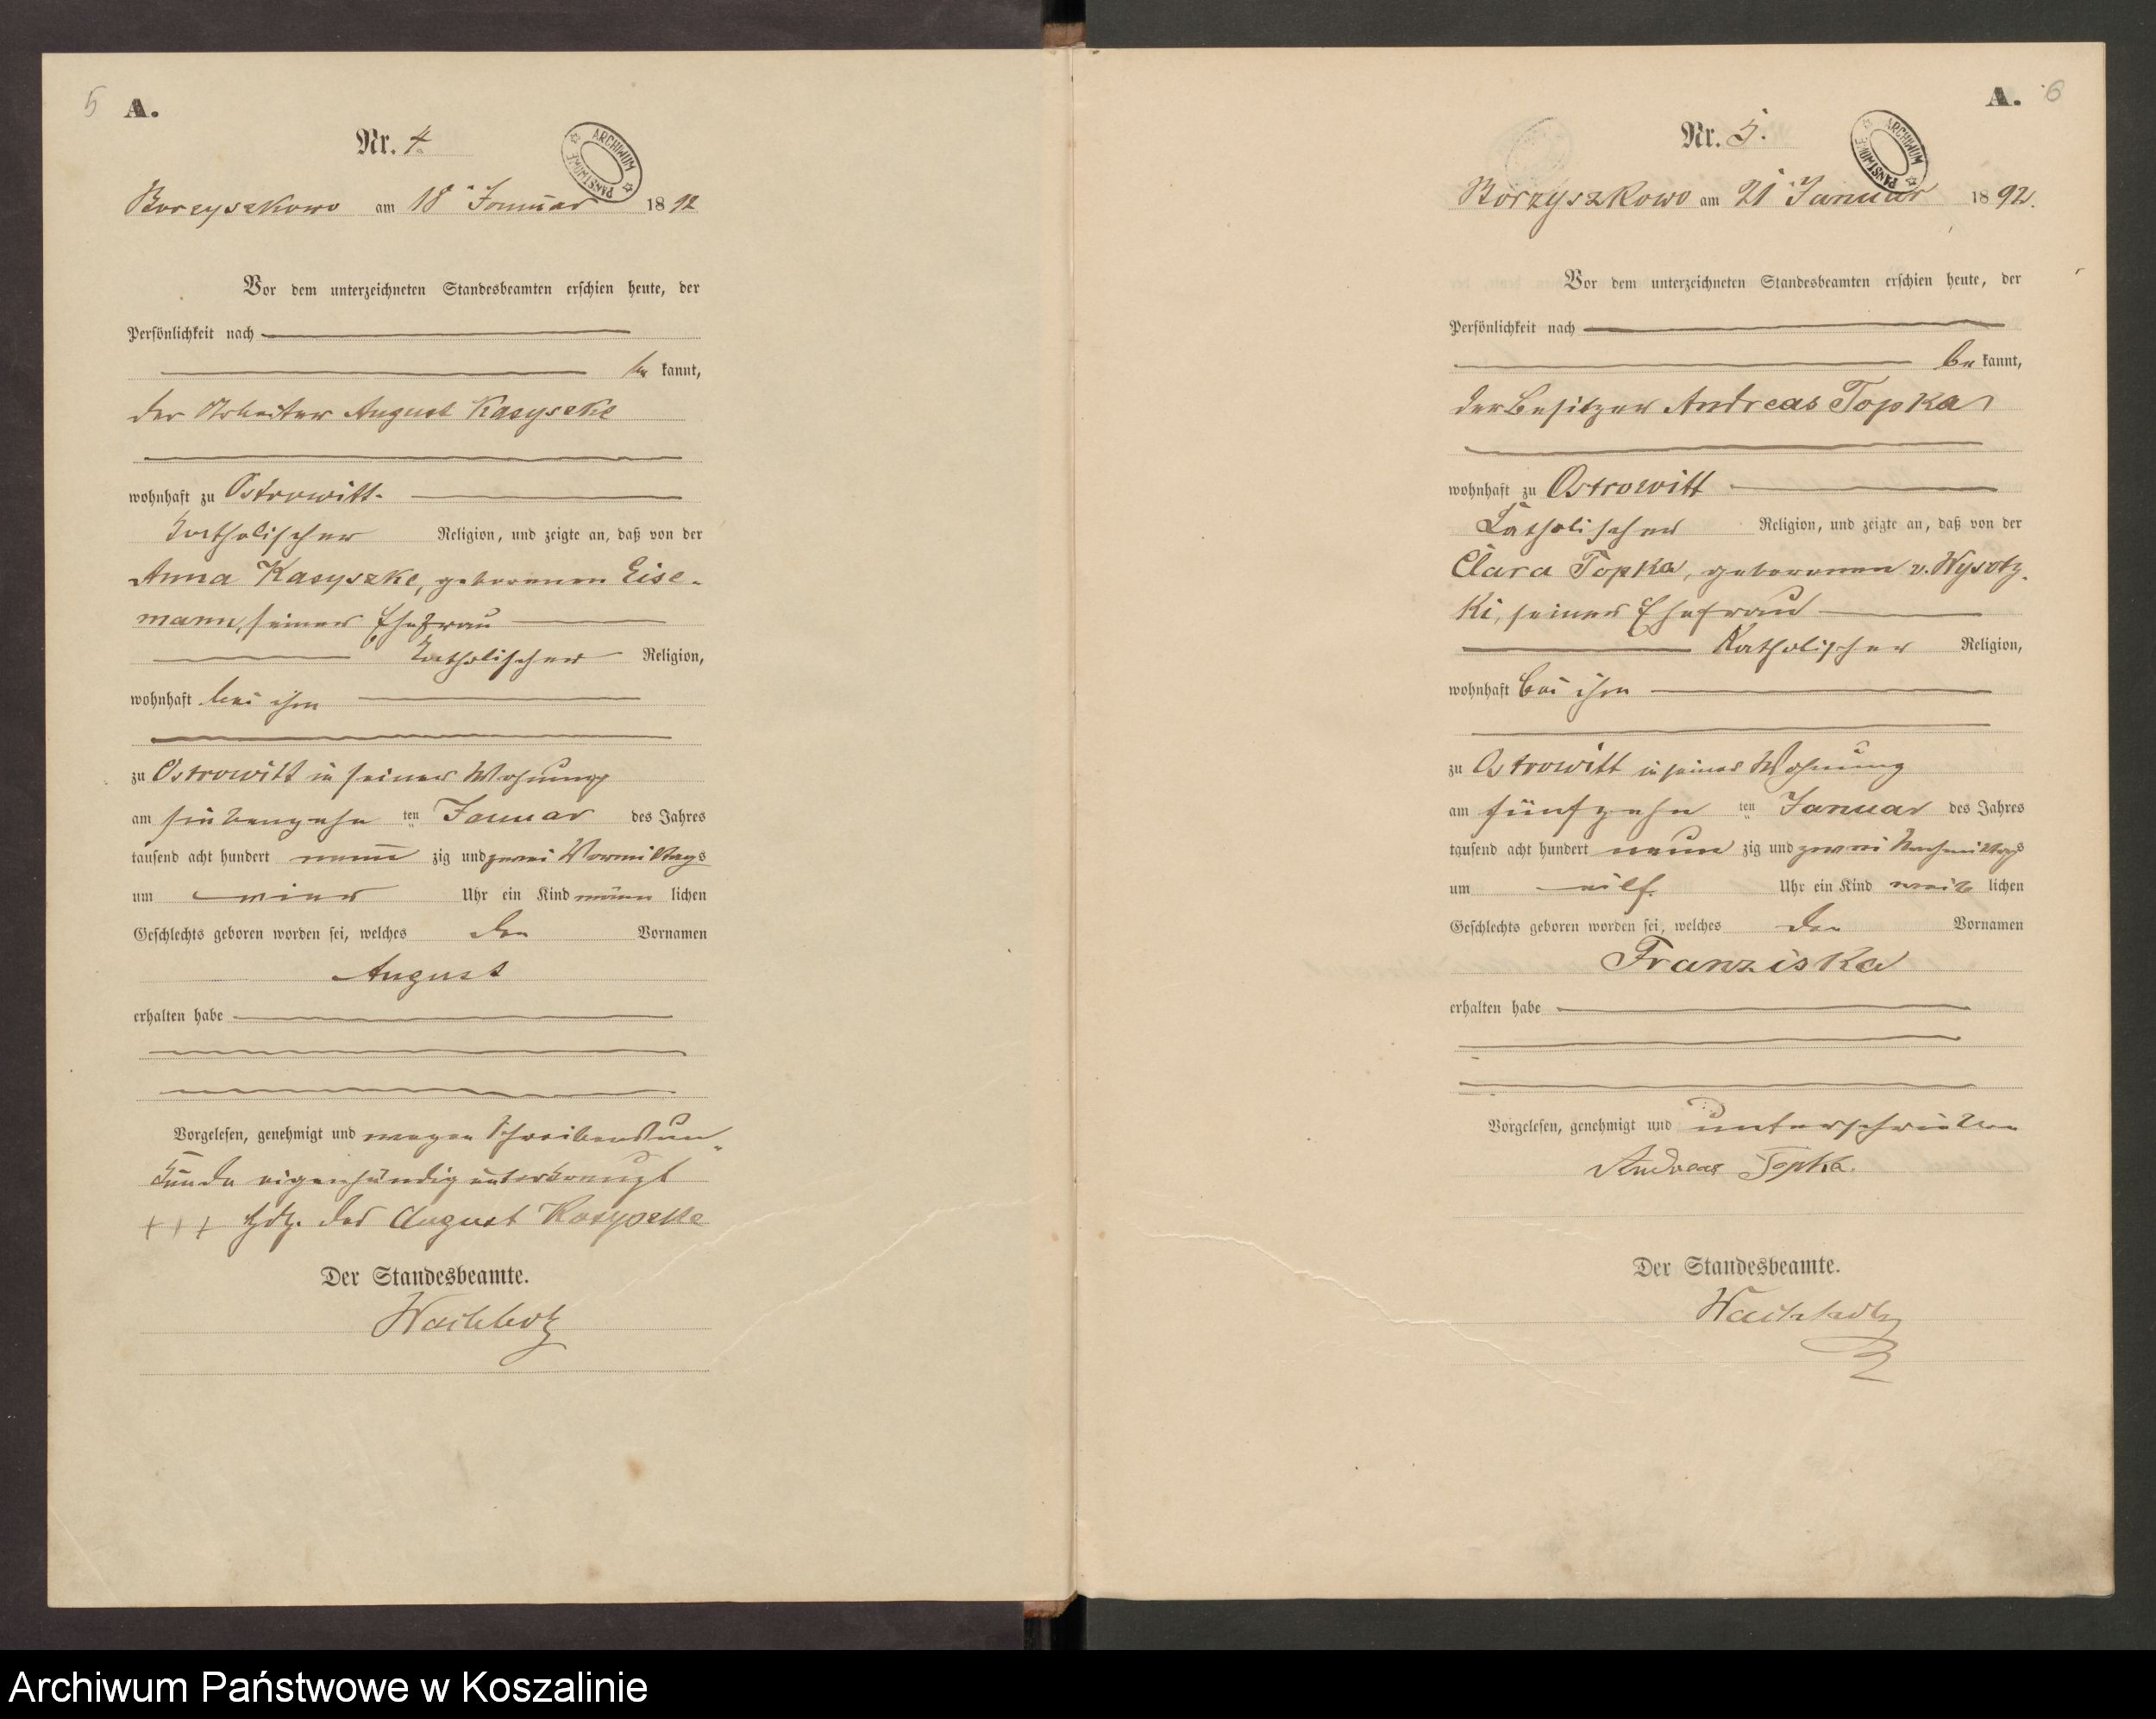 5 A.
Nr. 4.
ARCHIWUM PAŃSTWOWE
Borzyszkowo am 18 Januar 1892
Vor dem unterzeichneten Standesbeamten erschien heute, der
Persönlichkeit nach
be kannt,
der Arbeiter August Kasyszke
wohnhaft zu Ostrowitt
katholischer Religion, und zeigte an, daß von der
Anna Kasyszke, geborenen Eise-
mann, seiner Ehefrau
katholischer Religion,
wohnhaft bei ihm
zu Ostrowitt in seiner Wohnung
am siebenzehn ten Januar des Jahres
tausend acht hundert neun zig und zwei Vormittags
um Uhr ein Kind männ lichen
Geschlechts geboren worden sei, welches den Vornamen
August
erhalten habe
Vorgelesen, genehmigt und wegen Schreibensun-
kunde eigenhändig unterkreuzt
+++ Hdz. des August Kasyszke
Der Standesbeamte.
A. 6
Nr. 5.
ARCHIWUM PAŃSTWOWE
Borzyszkowo am 21 Januar 1892.
Vor dem unterzeichneten Standesbeamten erschien heute, der
Persönlichkeit nach
be kannt,
der Besitzer Andreas Topka
wohnhaft zu Ostrowitt
katholischer Religion, und zeigte an, daß von der
Clara Topka, geborenen v. Wysotz-
ki, seiner Ehefrau
katholischer Religion,
wohnhaft bei ihm
zu Ostrowitt in seiner Wohnung
am fünfzehn ten Januar des Jahres
tausend acht hundert neun zig und zwei Nachmittags
um eilf Uhr ein Kind weib lichen
Geschlechts geboren worden sei, welches den Vornamen
Franziska
erhalten habe
Vorgelesen, genehmigt und unterschrieben
Andreas Topka.
Der Standesbeamte.
Archiwum Państwowe w Koszalinie